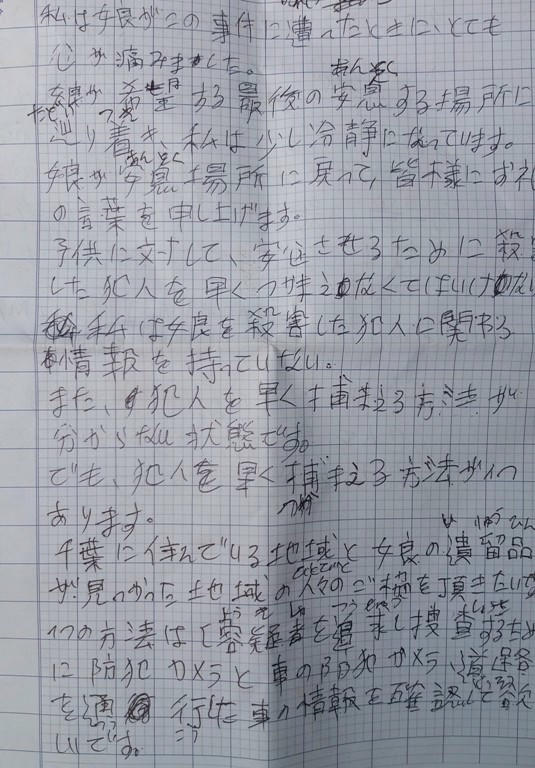 私は娘がこの事件に遭ったときに、とても
心が痛みました。
あんそく
娘が希望する最後の安息する場所に
たど つ
辿り着き、私は少し冷静になっています。
あんそく
娘が安息場所に戻って、皆様にお礼
の言葉を申し上げます。
子供に対して、安心させるために殺害
した犯人を早くつかまえなくてはいけない
私は娘を殺害した犯人に関する
情報を持っていない。
また、犯人を早く捕まえる方法が
分からない状態です。
でも、犯人を早く捕まえる方法が1つ
つか
あります。
い りゅうひん
千葉に住んでいる地域と娘の遺留品
が見つかった地域の人々のご協を頂きたい
よう ぎ しゃ つうせき そうさ
1つの方法は容疑者を追求し捜査するため
に防犯カメラと車の防犯カメラ、道路
を通行した車の情報を確認して欲
つう こう
しいです。